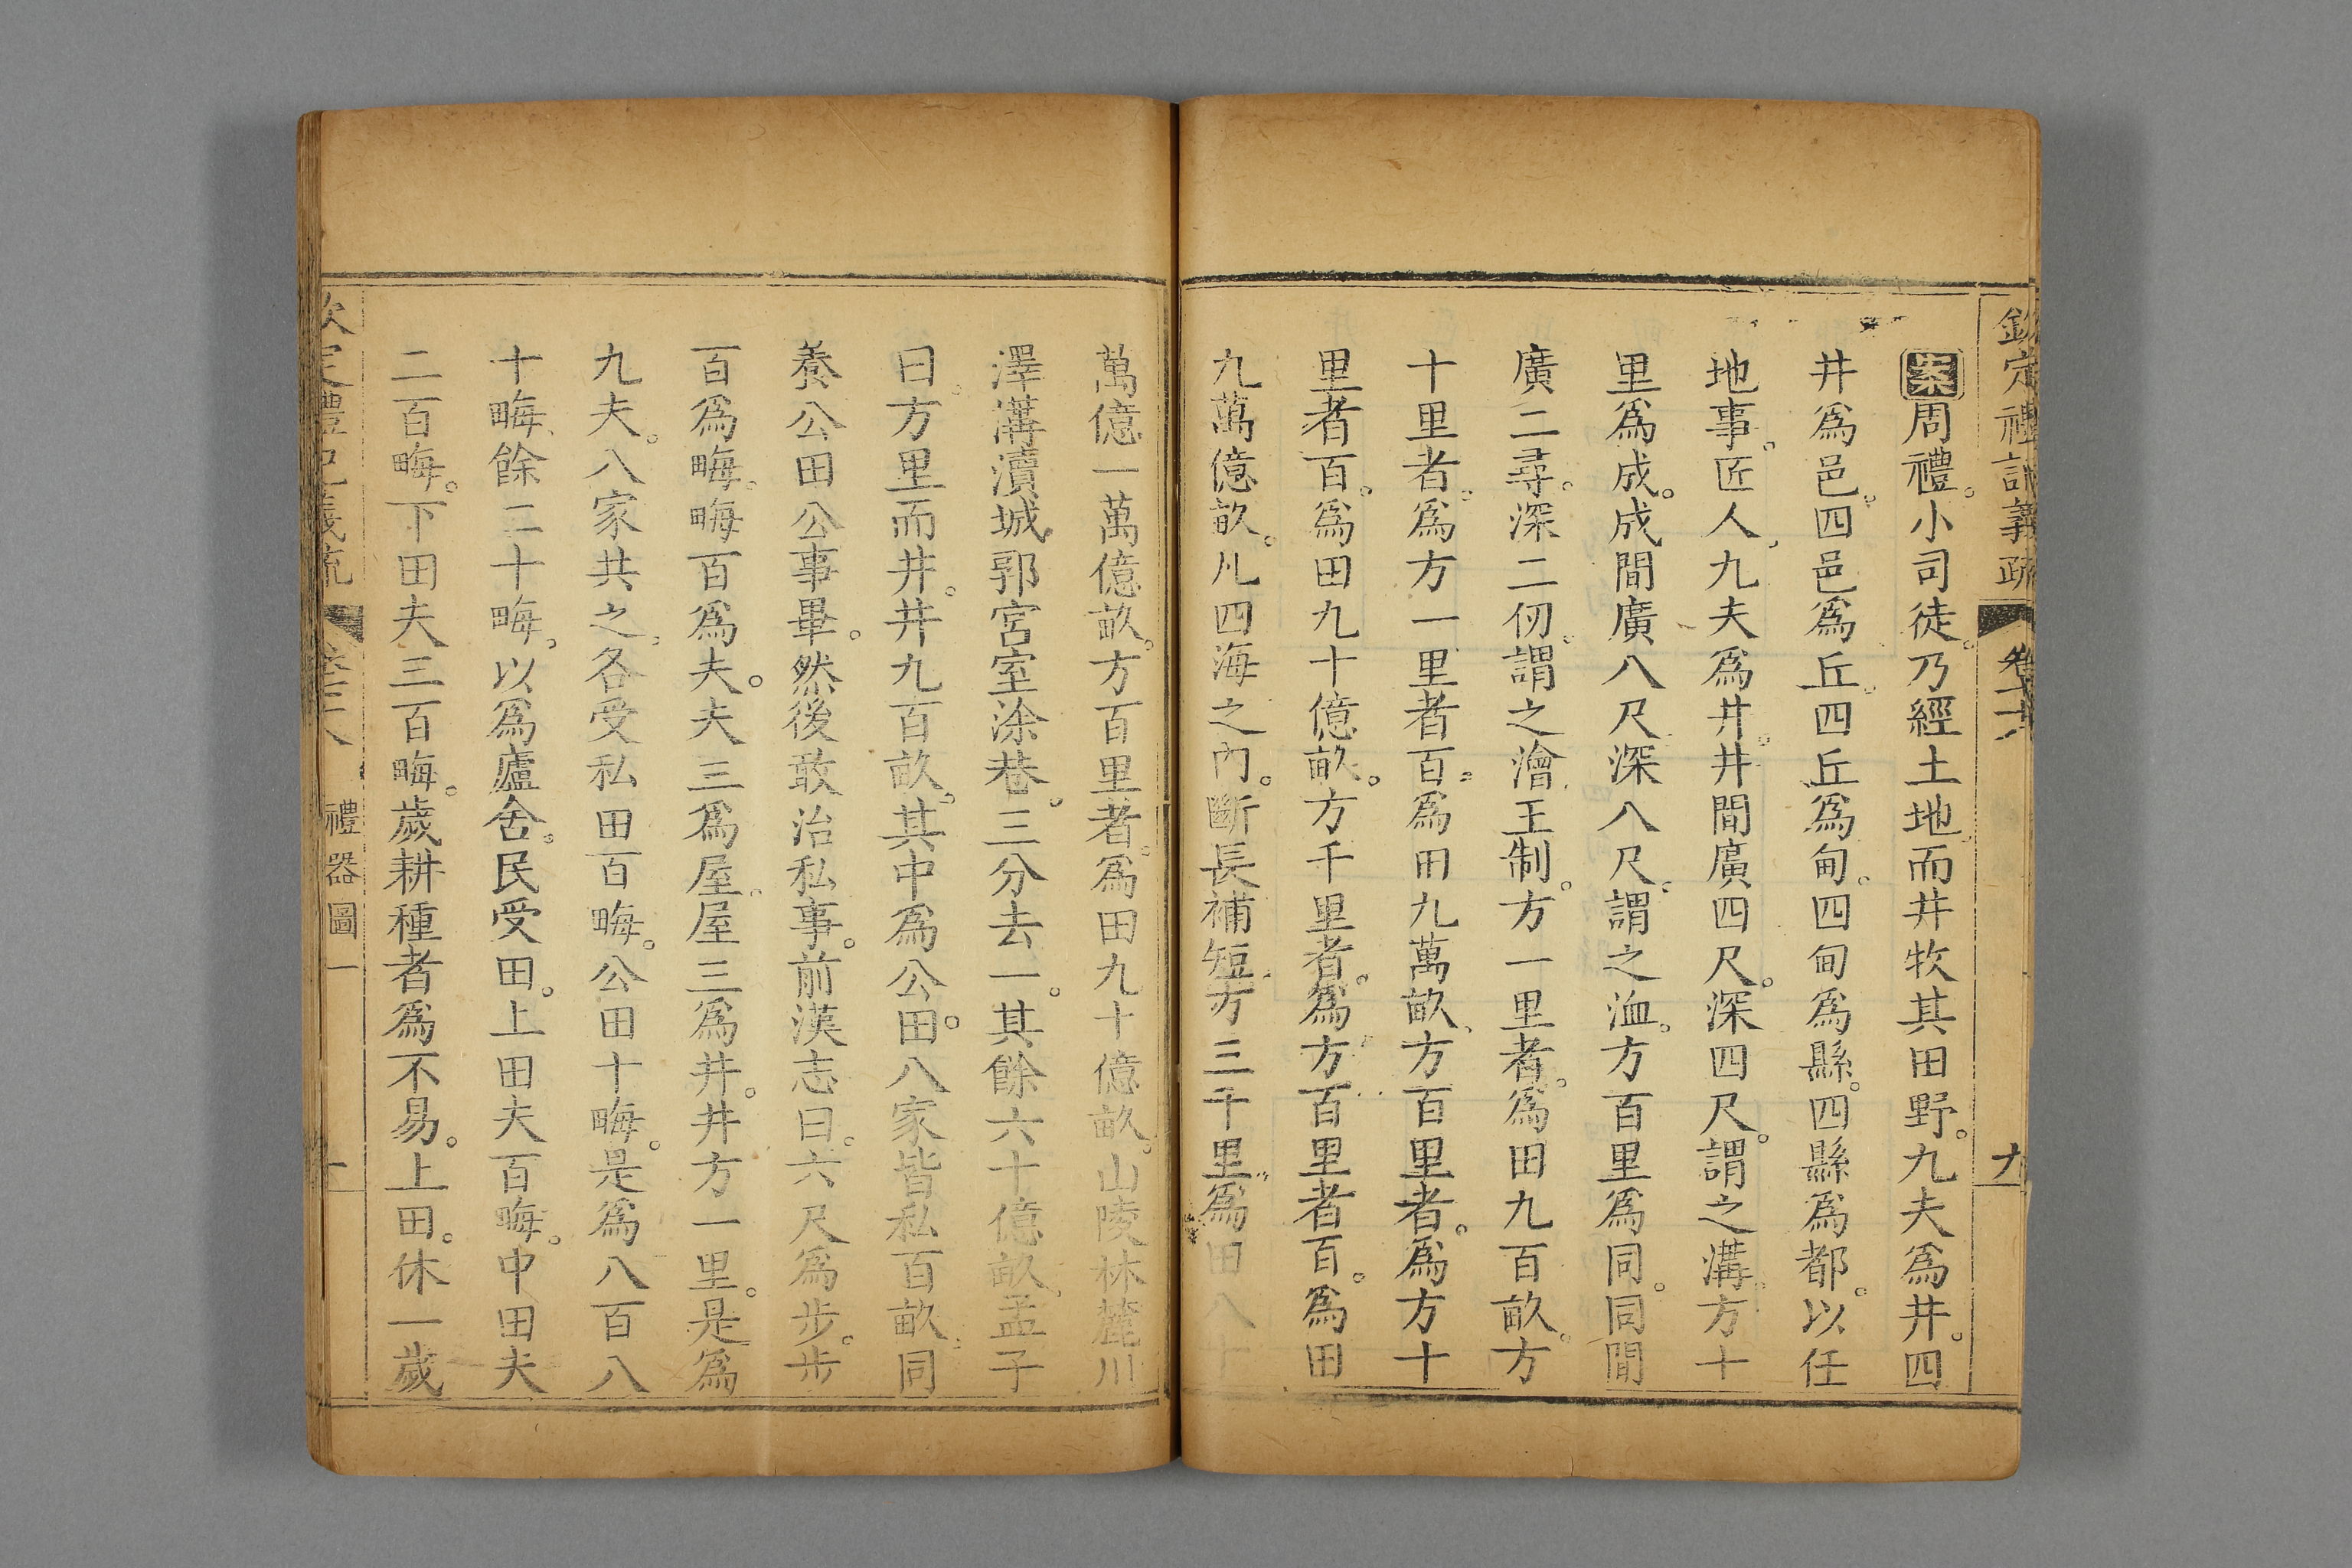 欽定禮記義疏 卷 九
案周禮。小司徒。乃經土地而井牧其田野。九夫爲井。四
井爲邑。四邑爲丘。四丘爲甸。四甸爲縣。四縣爲都。以任
地事。匠人。九夫爲井。井間廣四尺。深四尺。謂之溝。方十
里爲成。成間廣八尺深八尺。謂之洫。方百里爲同。同間
廣二尋。深二仞。謂之澮。王制。方一里者。爲田九百畝。方
十里者。爲方一里者百。爲田九萬畝。方百里者。爲方十
里者百。爲田九十億畝。方千里者。爲方百里者百。爲田
九萬億畝。凡四海之內。斷長補短。方三千里。爲田八十
萬億一萬億畝。方百里者。爲田九十億畝。山陵林麓川
澤溝瀆城郭宮室涂巷。三分去一。其餘六十億畝。孟子
曰。方里而井。井九百畝。其中爲公田。八家皆私百畝。同
養公田公事畢。然後敢治私事。前漢志曰。六尺爲步。步
百爲畮。畮百爲夫。夫三爲屋。屋三爲井。井方一里。是爲
九夫。八家共之。各受私田百畮。公田十畮。是爲八百八
十畮。餘二十畮。以爲廬舍。民受田。上田夫百畮。中田夫
二百畮。下田夫三百畮。歲耕種者爲不易。上田。休一歲
欽定禮記義疏 禮器圖一